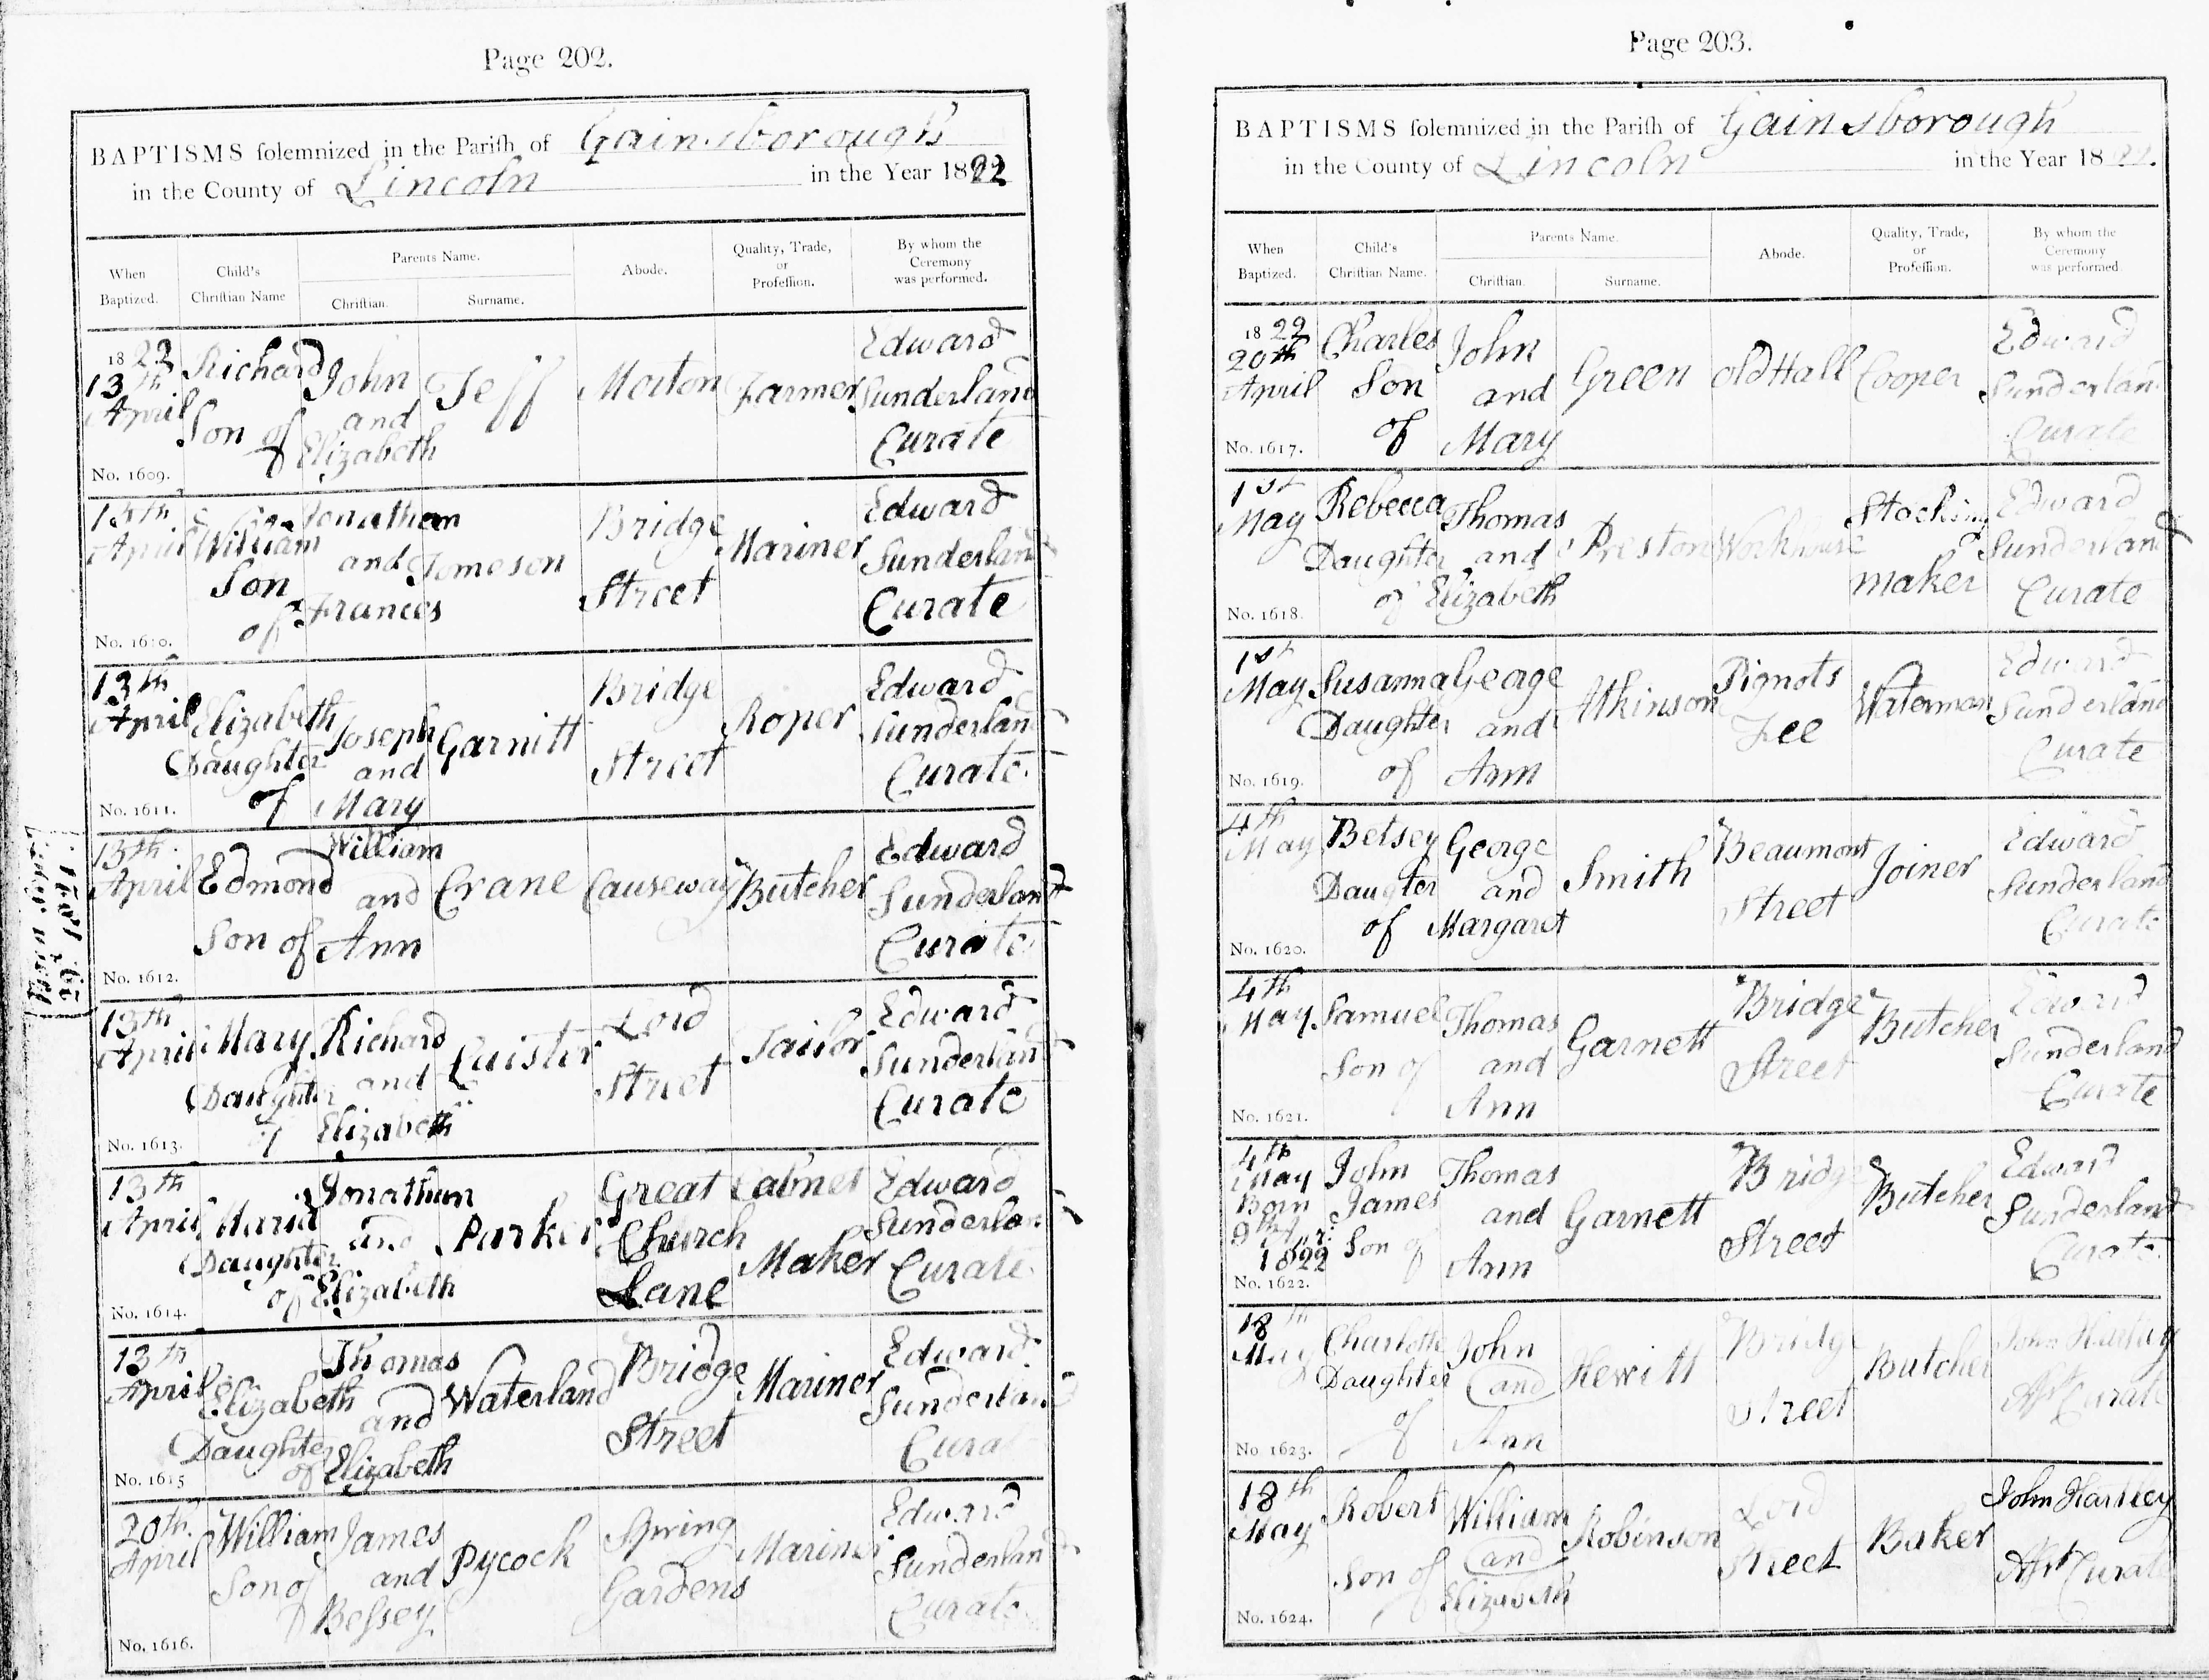 Page 202.
BAPTISMS solemnized in the Parish of Gainsborough
in the County of Lincoln in the Year 1822
When Baptized.
Child's Christian Name
Parents Name.
Christian.
Surname.
Abode.
Quality, Trade, or Profession.
By whom the Ceremony was performed.
1822
13th April
No. 1609.
Richard Son of
John and Elizabeth
Jeff
Morton
Farmer
Edward Sunderland Curate
13th April
No. 1610.
William Son of
Jonathan and Frances
Jomeson
Bridge Street
Mariner
Edward Sunderland Curate
13th April
No. 1611.
Elizabeth Daughter of
Joseph and Mary
Garnitt
Bridge Street
Roper
Edward Sunderland Curate
13th April
No. 1612.
Edmond Son of
William and Ann
Crane
Causeway
Butcher
Edward Sunderland Curate
13th April
No. 1613.
Mary Daughter of
Richard and Elizabeth
Luister
Lord Street
Tailor
Edward Sunderland Curate
13th April
No. 1614.
Maria Daughter of
Jonathan and Elizabeth
Parker
Great Church Lane
Cabinet Maker
Edward Sunderland Curate
13th April
No. 1615
Elizabeth Daughter of
Thomas and Elizabeth
Waterland
Bridge Street
Mariner
Edward Sunderland Curate
20th April
No. 1616.
William Son of
James and Bessey
Pycock
Spring Gardens
Mariner
Edward Sunderland Curate
Page 203.
BAPTISMS solemnized in the Parish of Gainsborough
in the County of Lincoln in the Year 1822.
When Baptized.
Child's Christian Name.
Parents Name.
Christian.
Surname.
Abode.
Quality, Trade, or Profession.
By whom the Ceremony was performed.
1822
20th April
No. 1617.
Charles Son of
John and Mary
Green
old Hall
Cooper
Edward Sunderland Curate
1st May
No. 1618.
Rebecca Daughter of
Thomas and Elizabeth
Preston
Workhouse
Stocking maker
Edward Sunderland Curate
1st May
No. 1619.
Susanna Daughter of
George and Ann
Atkinson
Pignots Lee
Waterman
Edward Sunderland Curate
4th May
No. 1620.
Betsey Daughter of
George and Margaret
Smith
Beaumont Street
Joiner
Edward Sunderland Curate
4th May
No. 1621.
Samuel Son of
Thomas and Ann
Garnett
Bridge Street
Butcher
Edward Sunderland Curate
4th May Born 9th Apr: 1822
No. 1622.
John James Son of
Thomas and Ann
Garnett
Bridge Street
Butcher
Edward Sunderland Curate
18th May
No. 1623.
Charlotte Daughter of
John and Ann
Hewitt
Bridge Street
Butcher
John Hartley Asst Curate
18th May
No. 1624.
Robert Son of
William and Elizabeth
Robinson
Lord Street
Baker
John Hartley Asst Curate